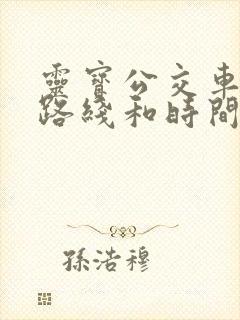 靈寶公交車
路綫和時間
孫浩穆